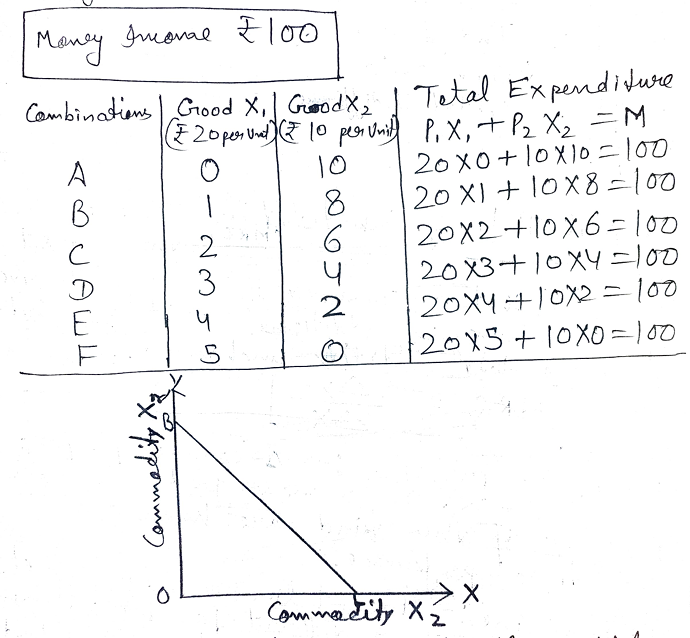 Money Income ₹100
Combinations Good X₁ (₹20 per Unit) Good X₂ (₹ 10 per Unit) Total Expenditure P₁X₁ + P₂X₂ = M
A 0 10 20X0+10X10=100
B 1 8 20X1+10X8=100
C 2 6 20X2+10X6=100
D 3 4 20X3+10X4=100
E 4 2 20X4+10X2=100
F 5 0 20X5+10X0=100
Y
Commodity X₂
B
O
X
Commodity X₂